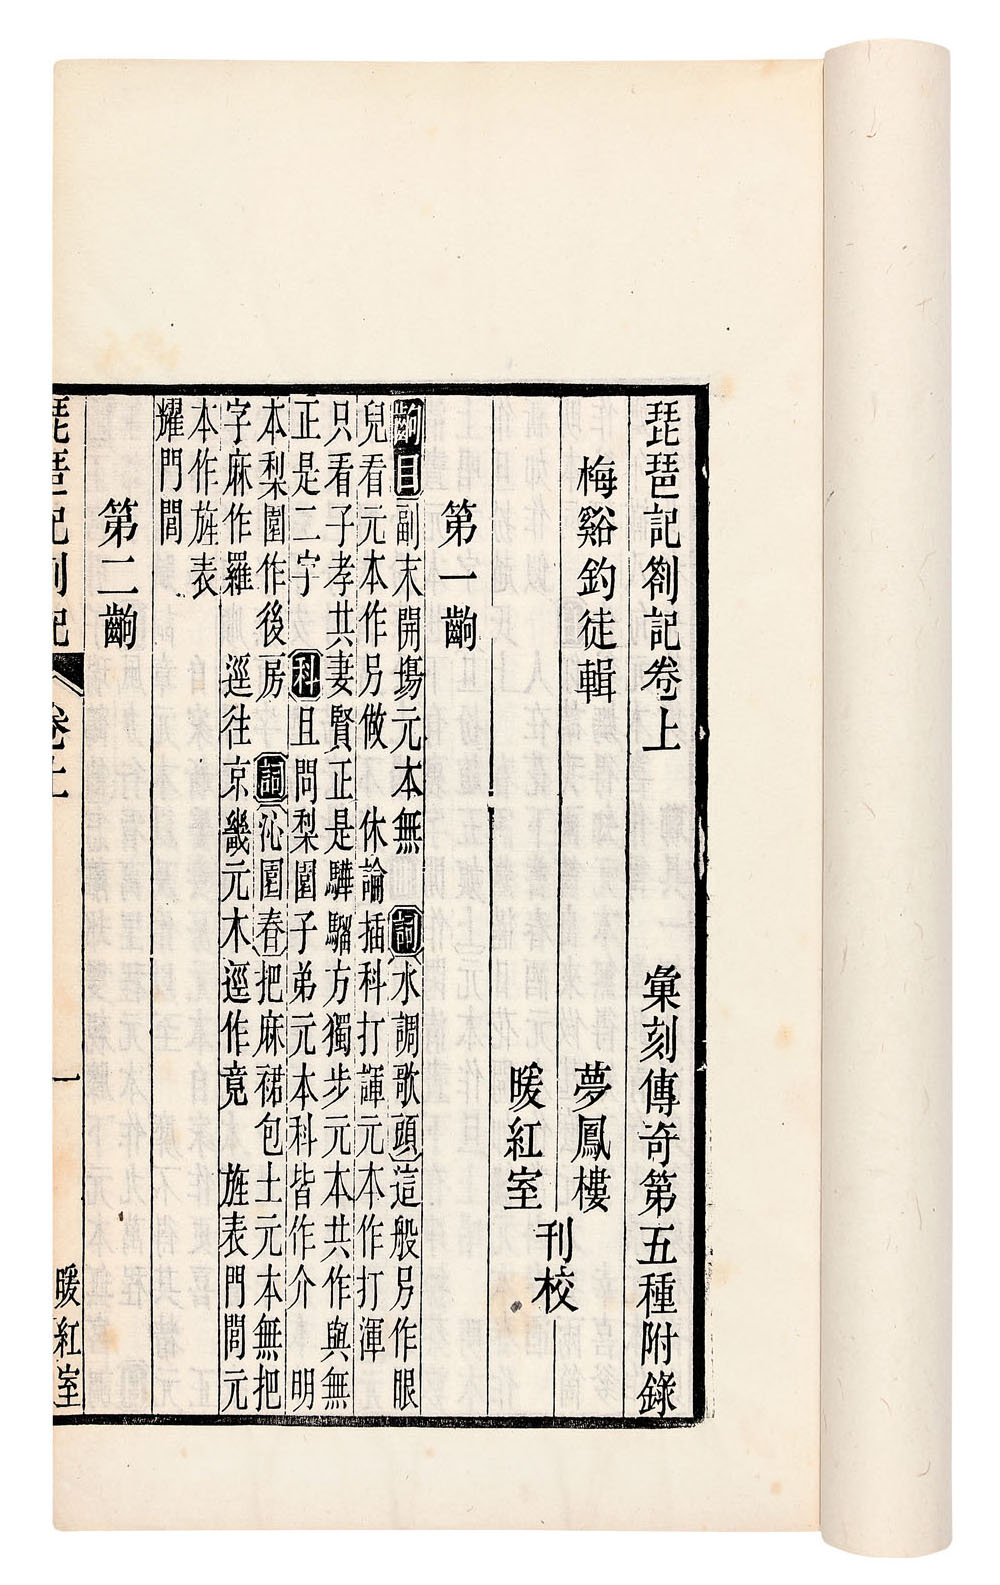 琵琶記劄記卷上　彙刻傳奇第五種附錄
梅谿釣徒輯　夢鳳樓
暖紅室
刊校
第一齣
齣目副末開場元本無　詞水調歌頭這般另作眼
兒看元本作另做　休論插科打諢元本作打渾
只看子孝共妻賢正是驊騮方獨步元本共作與無
正是二字　科且問梨園子弟元本科皆作介　明
本梨園作後房　詞沁園春把麻裙包土元本無把
字麻作羅　逕往京畿元木逕作竟　旌表門閭元
本作旌表
耀門閭
第二齣
琵琶記劄記　卷上　一　暖紅室